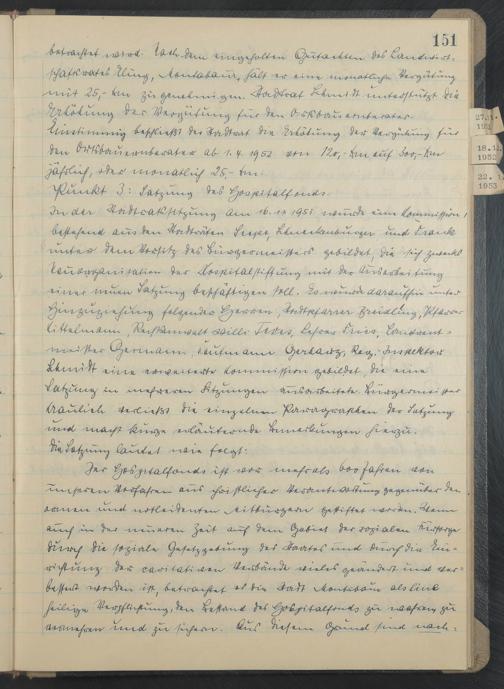 151
betrachtet wird. Nach dem eingeholten Gutachten des Landwirt-
schaftsrates Kling, Montabaur, hält er eine monatliche Vergütung
mit 25,- DM zu genehmigen. Stadtrat Schmidt unterstützt die
Erhöhung der Vergütung für den Ortsbauernberater.
Einstimmig beschließt der Stadtrat die Erhöhung der Vergütung für
den Ortsbauernberater ab 1.4.1952 von 120,- DM auf 300,- DM
jährlich, oder monatlich 25,- DM.
Punkt 3: Satzung des Hospitalfonds.
In der Stadtratssitzung am 16. 1951 wurde eine Kommission,
bestehend aus den Stadträten und Frank
unter dem Vorsitz des Bürgermeisters gebildet, die sich zwecks
Neuorganisation der Hospitalstiftung mit der Ausarbeitung
einer neuen Satzung beschäftigen soll. Es wurde daraufhin unter
Hinzuziehung folgender Herren, Stadtpfarrer Pfarrer
Rechtsanwalt Willi Lehrer
meister Germann, Kaufmann Gerharz, Reg. Inspektor
Schmidt eine erweiterte Kommission gebildet, die eine
Satzung in mehreren Sitzungen ausarbeitete. Bürgermeister
verliest die einzelnen Paragraphen der Satzung
und macht kurze erläuternde Bemerkungen hierzu.
Die Satzung lautet wie folgt:
Der Hospitalfonds ist vor mehr als 600 Jahren von
unseren Vorfahren aus christlicher Verantwortung gegenüber den
armen und notleidenden Mitbürgern gestiftet worden. Wenn
auch in der neueren Zeit auf dem Gebiet der sozialen Fürsorge
durch die soziale Gesetzgebung des Staates und durch die Ein-
richtung der caritativen Verbände vieles geändert und ver-
bessert worden ist, betrachtet es die Stadt Montabaur als eine
heilige Verpflichtung, den Bestand des Hospitalfonds zu wahren, zu
vermehren und zu sichern. Aus diesem Grund sind nach-
18.12.
1952
22.
1953